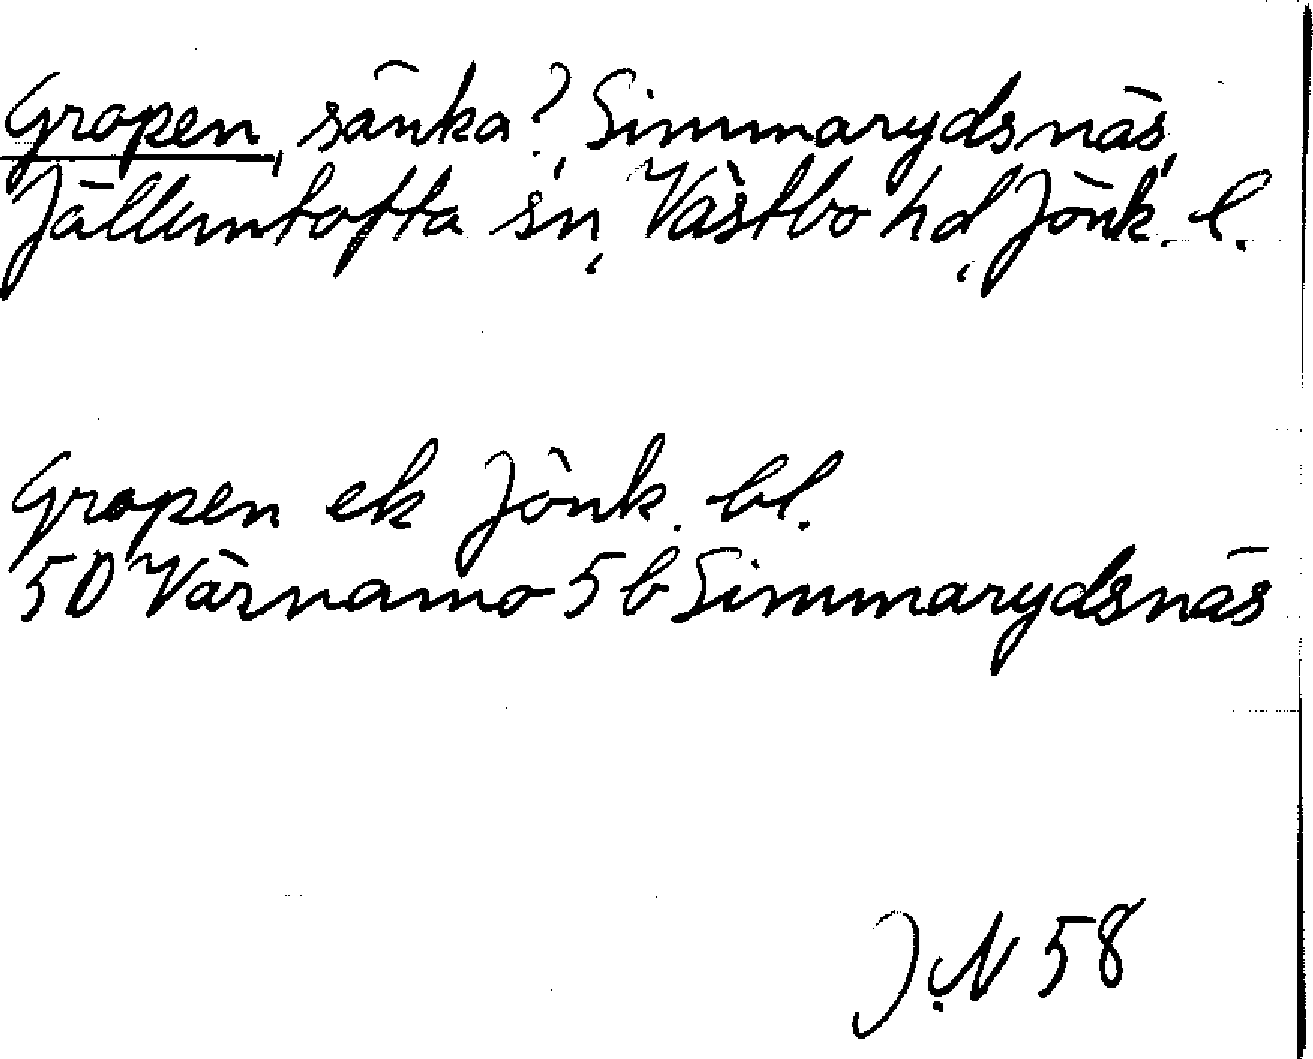 Gropen, sänka?, Simmarydsnäs,
Jälluntofta sn, Västbo hd, Jönk. l.
Gropen ek Jönk. bl.
5D Värnamo 5b Simmarydsnäs
J.N 58